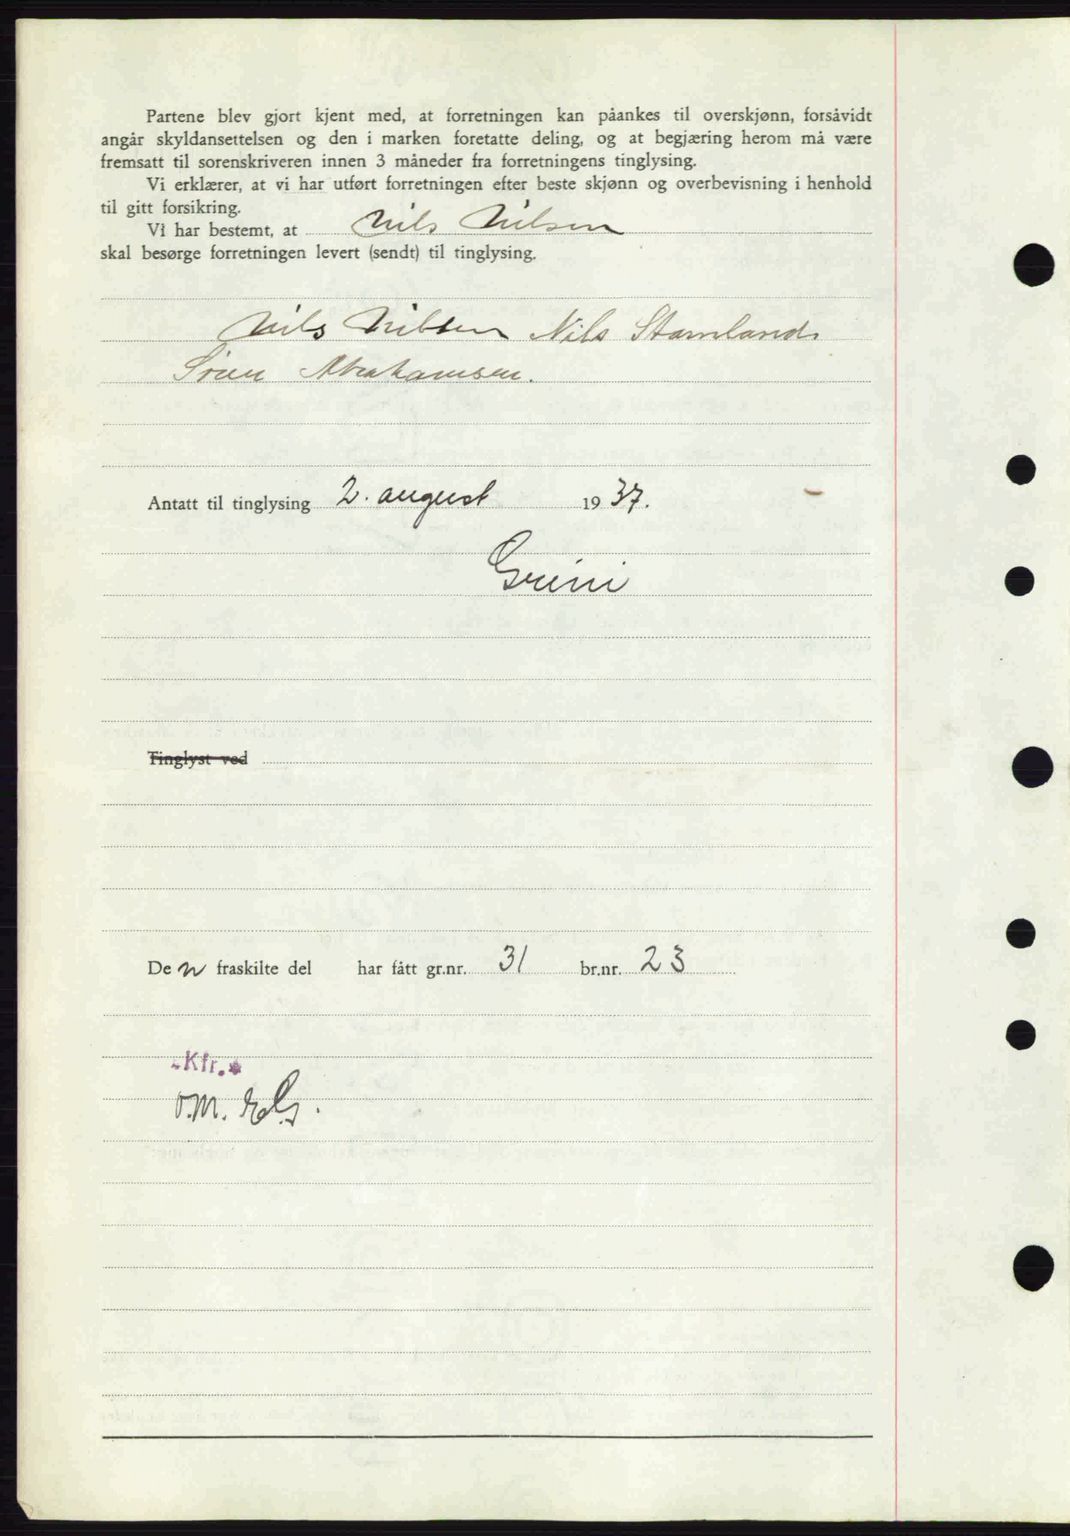 Partene blev gjort kjent med, at forretningen kan påankes til overskjønn, forsåvidt
angår skyldansettelsen og den i marken foretatte deling, og at begjæring herom må være
fremsatt til sorenskriveren innen 3 måneder fra forretningens tinglysing.
Vi erklærer, at vi har utført forretningen efter beste skjønn og overbevisning i henhold
til gitt forsikring.
Vi har bestemt, at Nils Nilsen
skal besørge forretningen levert (sendt) til tinglysing.
Nils Nilsen Nils Stamland
Abrahamsen.
Antatt til tinglysing 2. august 1937.
Grini
Tinglyst ved
Den fraskilte del har fått gr.nr. 31 br.nr. 23
Kfr.
O.M.